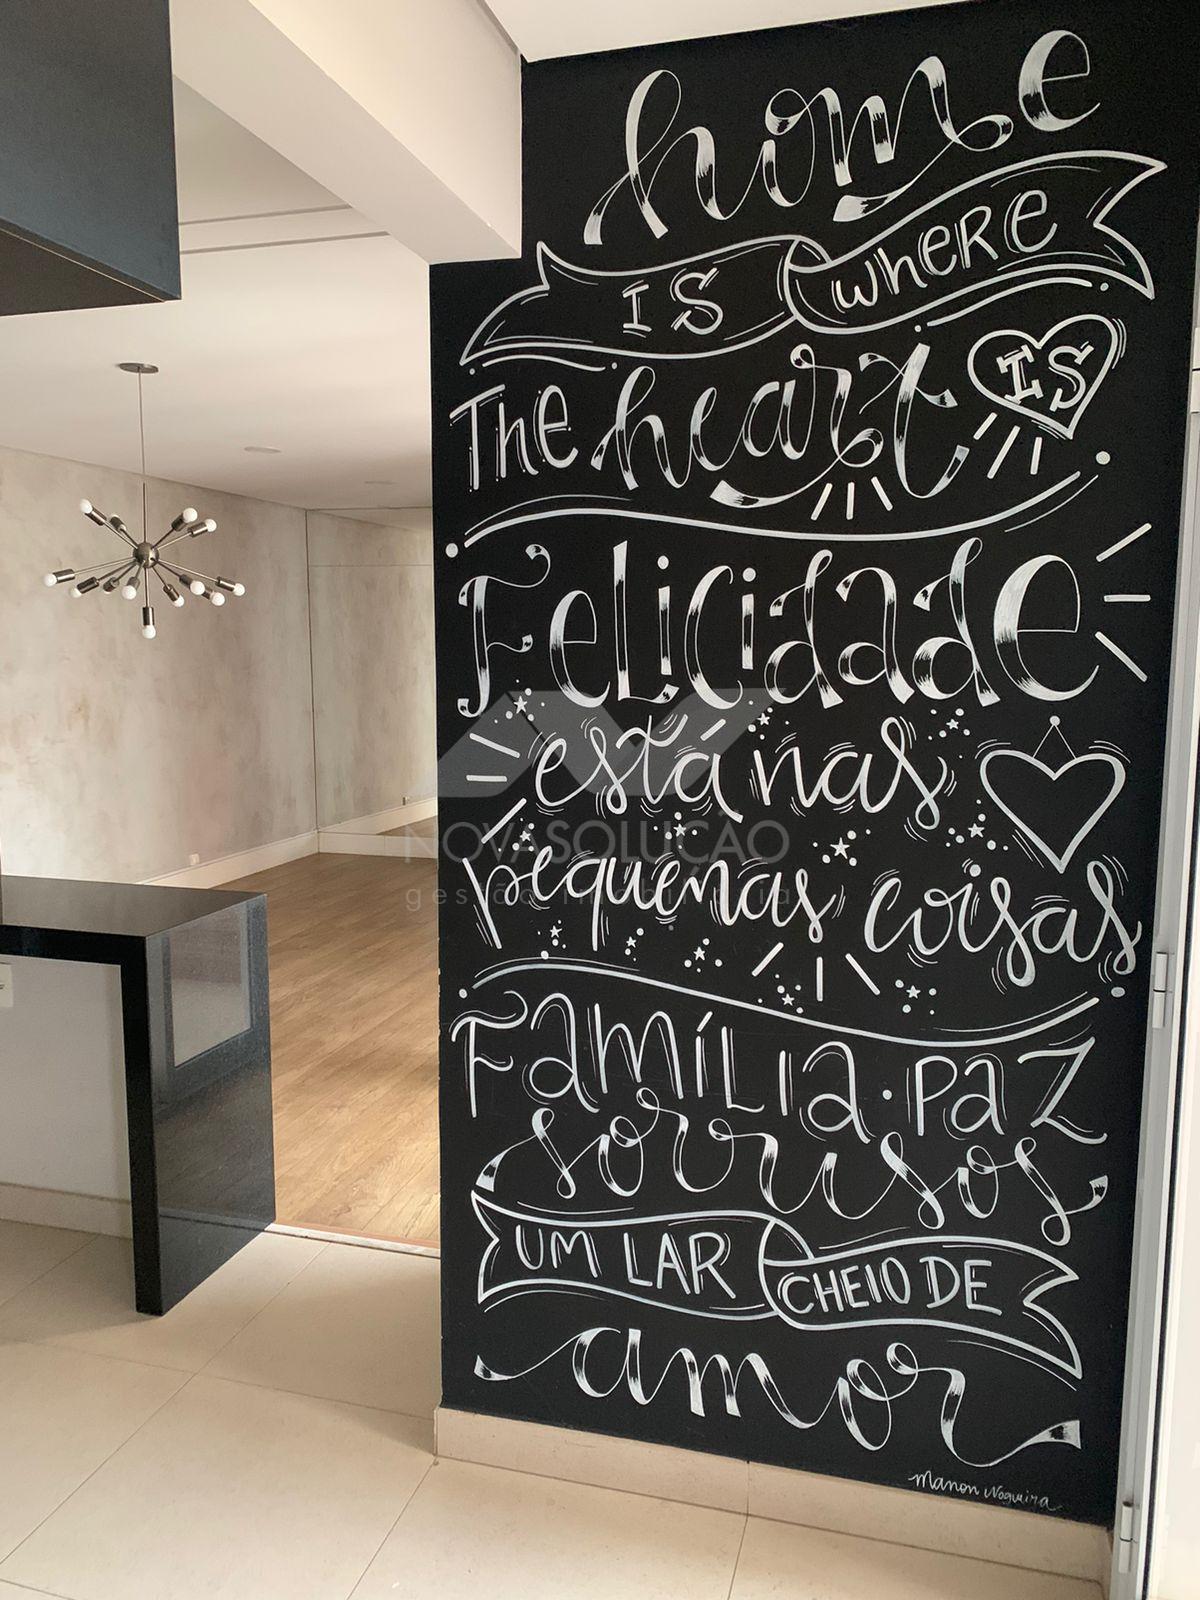 home
IS WHERE
THE heart IS
Felicidade
está nas
pequenas coisas
NOVASOLUÇÃO
gestão imobiliária
FAMÍLIA · PAZ
sorrisos
UM LAR CHEIO DE
amor
Manon Nogueira